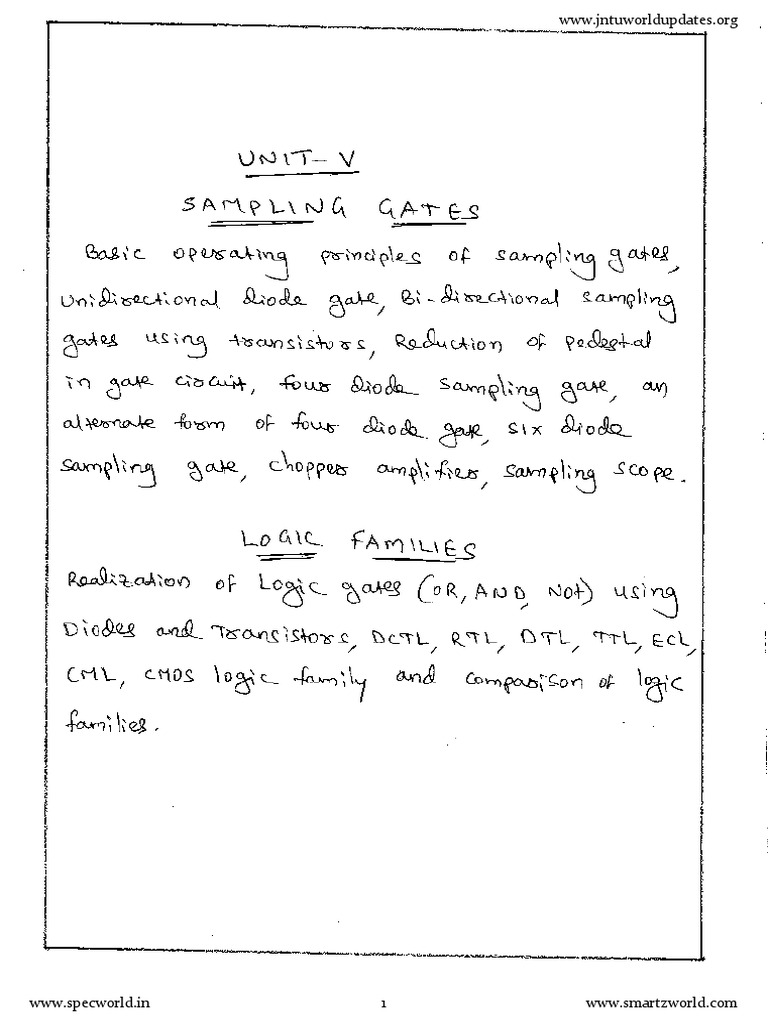 www.jntuworldupdates.org
UNIT-V
SAMPLING GATES
Basic operating principles of sampling gates,
Unidirectional diode gate, Bi-directional sampling
gates using transistors, Reduction of pedestal
in gate circuit, four diode sampling gate, an
alternate form of four diode gate, six diode
sampling gate, chopper amplifier, sampling scope.
LOGIC FAMILIES
Realization of Logic gates (OR, AND, NOT) using
Diodes and Transistors, DCTL, RTL, DTL, TTL, ECL,
CML, CMOS logic family and comparison of logic
families.
www.specworld.in 1 www.smartzworld.com